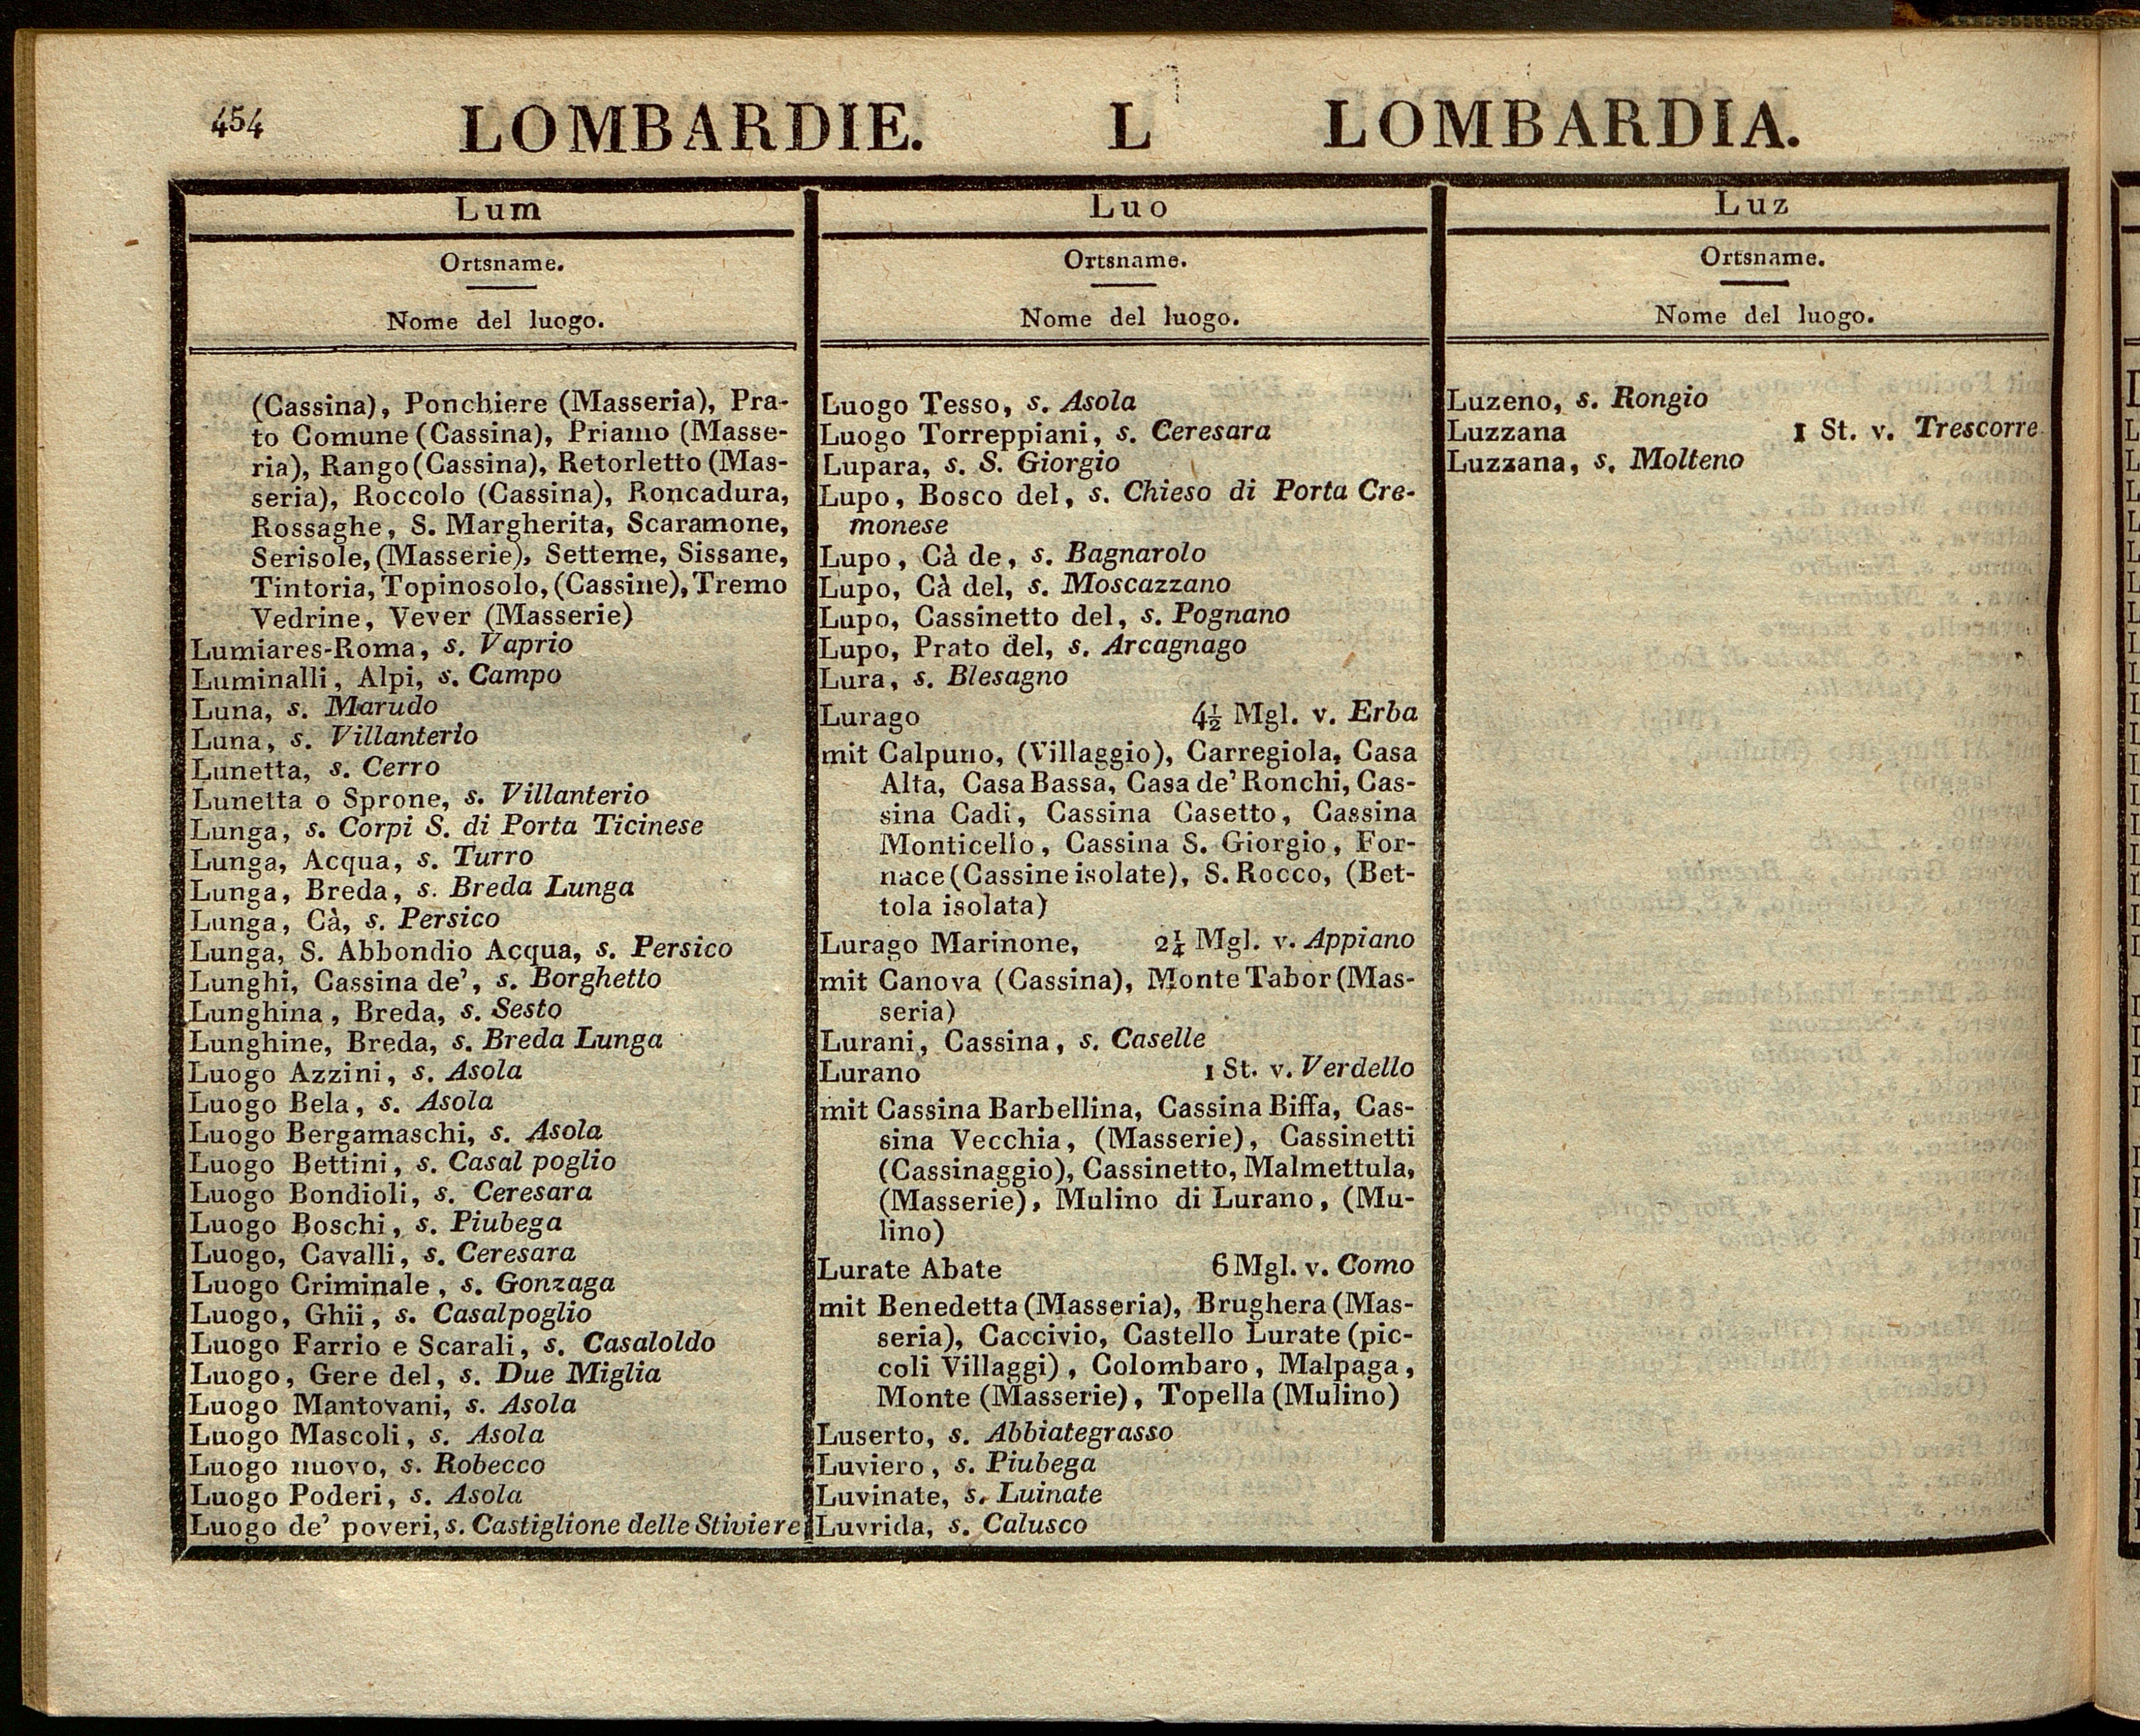 454
LOMBARDIE. L LOMBARDIA.
Lum
Ortsname.
Nome del luogo.
(Cassina), Ponchiere (Masseria), Pra-
to Comune (Cassina), Priamo (Masse-
ria), Rango (Cassina), Retorletto (Mas-
seria), Roccolo (Cassina), Roncadura,
Rossaghe, S. Margherita, Scaramone,
Serisole, (Masserie), Setteme, Sissane,
Tintoria, Topinosolo, (Cassine), Tremo
Vedrine, Vever (Masserie)
Lumiares-Roma, s. Vaprio
Luminalli, Alpi, s. Campo
Luna, s. Marudo
Luna, s. Villanterio
Lunetta, s. Cerro
Lunetta o Sprone, s. Villanterio
Lunga, s. Corpi S. di Porta Ticinese
Lunga, Acqua, s. Turro
Lunga, Breda, s. Breda Lunga
Lunga, Cà, s. Persico
Lunga, S. Abbondio Acqua, s. Persico
Lunghi, Cassina de', s. Borghetto
Lunghina, Breda, s. Sesto
Lunghine, Breda, s. Breda Lunga
Luogo Azzini, s. Asola
Luogo Bela, s. Asola
Luogo Bergamaschi, s. Asola
Luogo Bettini, s. Casal poglio
Luogo Bondioli, s. Ceresara
Luogo Boschi, s. Piubega
Luogo, Cavalli, s. Ceresara
Luogo Criminale, s. Gonzaga
Luogo, Ghii, s. Casalpoglio
Luogo Farrio e Scarali, s. Casaloldo
Luogo, Gere del, s. Due Miglia
Luogo Mantovani, s. Asola
Luogo Mascoli, s. Asola
Luogo nuovo, s. Robecco
Luogo Poderi, s. Asola
Luogo de' poveri, s. Castiglione delle Stiviere
Luo
Ortsname.
Nome del luogo.
Luogo Tesso, s. Asola
Luogo Torreppiani, s. Ceresara
Lupara, s. S. Giorgio
Lupo, Bosco del, s. Chieso di Porta Cre-
monese
Lupo, Cà de, s. Bagnarolo
Lupo, Cà del, s. Moscazzano
Lupo, Cassinetto del, s. Pognano
Lupo, Prato del, s. Arcagnago
Lura, s. Blesagno
Lurago 4½ Mgl. v. Erba
mit Calpuno, (Villaggio), Carregiola, Casa
Alta, Casa Bassa, Casa de' Ronchi, Cas-
sina Cadi, Cassina Casetto, Cassina
Monticello, Cassina S. Giorgio, For-
nace (Cassine isolate), S. Rocco, (Bet-
tola isolata)
Lurago Marinone, 2¼ Mgl. v. Appiano
mit Canova (Cassina), Monte Tabor (Mas-
seria)
Lurani, Cassina, s. Caselle
Lurano 1 St. v. Verdello
mit Cassina Barbellina, Cassina Biffa, Cas-
sina Vecchia, (Masserie), Cassinetti
(Cassinaggio), Cassinetto, Malmettula,
(Masserie), Mulino di Lurano, (Mu-
lino)
Lurate Abate 6 Mgl. v. Como
mit Benedetta (Masseria), Brughera (Mas-
seria), Caccivio, Castello Lurate (pic-
coli Villaggi), Colombaro, Malpaga,
Monte (Masserie), Topella (Mulino)
Luserto, s. Abbiategrasso
Luviero, s. Piubega
Luvinate, s. Luinate
Luvrida, s. Calusco
Luz
Ortsname.
Nome del luogo.
Luzeno, s. Rongio
Luzzana 1 St. v. Trescorre
Luzzana, s. Molteno